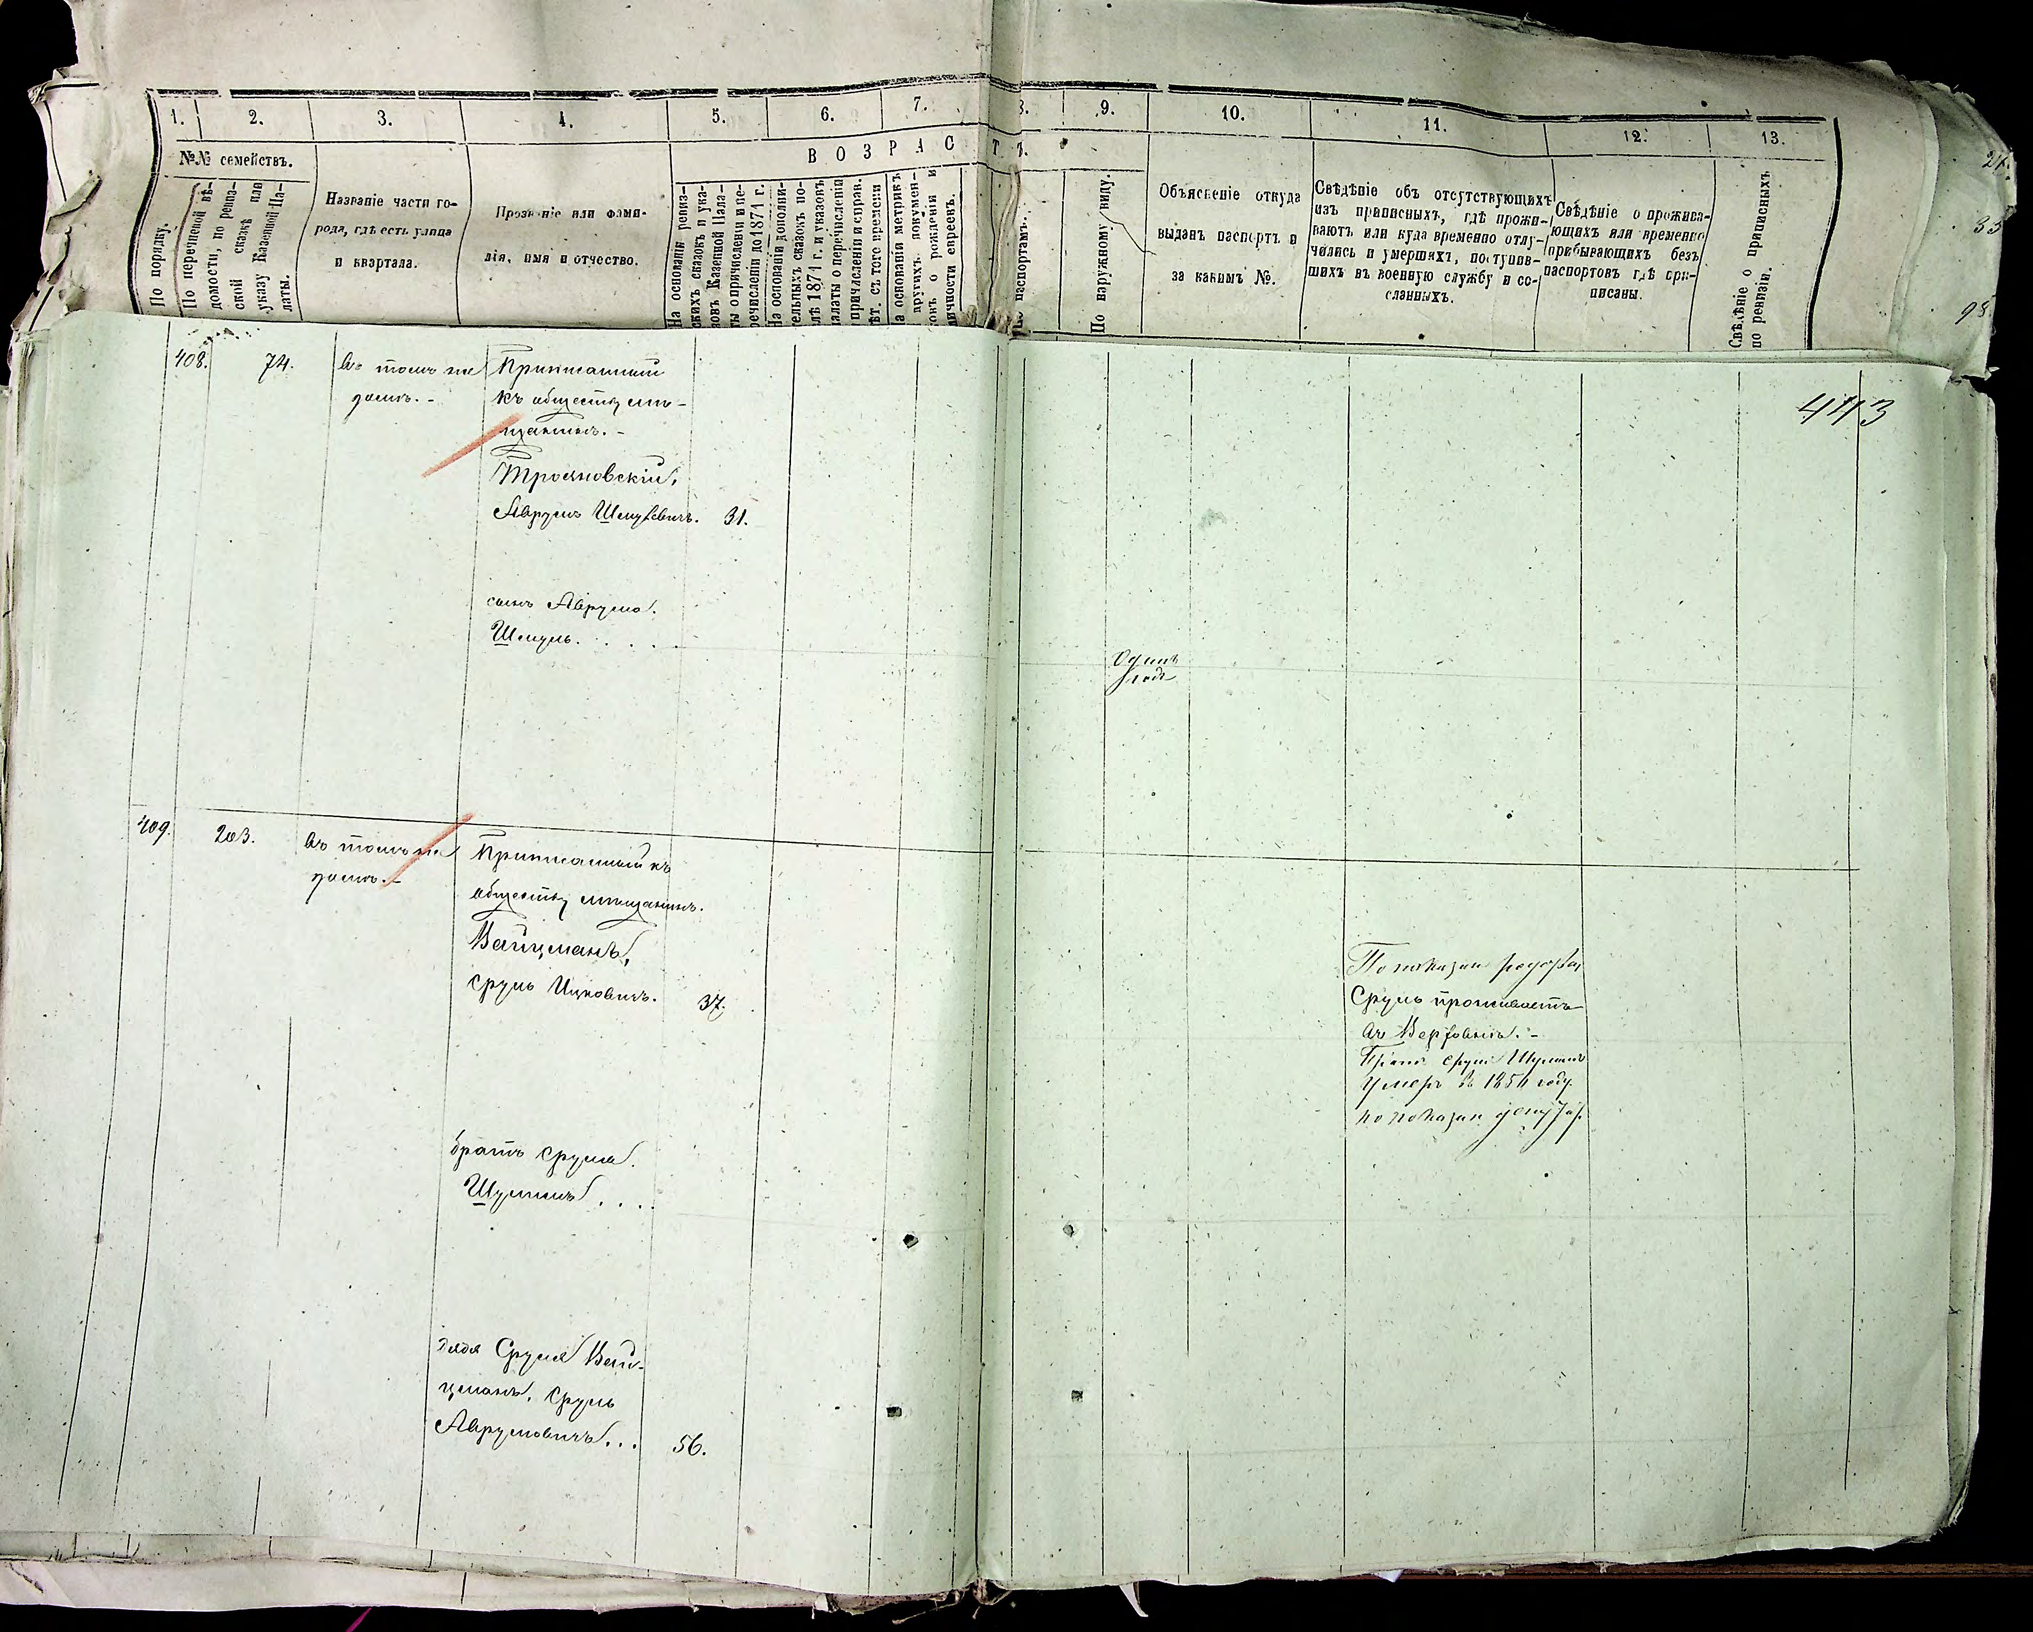 1. 2. 3. 4. 5. 6. 7. 8. 9. 10. 11. 12. 13.
№№ семействъ.
В О З Р А С Т Ъ.
По порядку.
По перечневой вѣ-
домости, по ревиз-
ской сказкѣ или
указу Казенной Па-
латы.
Названіе части го-
рода, гдѣ есть улица
и квартала.
Прозваніе или фами-
лія, имя и отчество.
На основаніи ревиз-
скихъ сказокъ и ука-
зовъ Казенной Пала-
ты о причисленіи и пе-
речисленіи до 1871 г.
На основаніи дополни-
тельныхъ сказокъ по-
слѣ 1871 г. и указовъ
Палаты о перечисленіи
и причисленіи и справ.
лѣт. съ того времени
На основаніи метрикъ
и другихъ докумен-
товъ о рожденіи и
личности евреевъ.
По паспортамъ.
По наружному виду.
Объясненіе откуда
выданъ паспортъ и
за какимъ №.
Свѣдѣніе объ отсутствующихъ
изъ приписныхъ, гдѣ прожи-
ваютъ или куда временно отлу-
чились и умершихъ, поступив-
шихъ въ военную службу и со-
сланныхъ.
Свѣдѣніе о прожива-
ющихъ или временно
прибывающихъ безъ
паспортовъ гдѣ при-
писаны.
Свѣдѣніе о приписныхъ
по ревизіи.
443
408. 74. Въ томъ же
домѣ. -
Приписанный
къ обществу мѣ-
щанинъ. -
Трояновскій,
Аврумъ Шмулевичъ. 31.
сынъ Аврума.
Шмуль. . . .
Одинъ
годъ
409. 203. Въ томъ же
домѣ. -
Приписанный къ
обществу мѣщанинъ.
Вайцманъ,
Сруль Ицковичъ. 37.
По показан.
Сруль проживаетъ
въ
Братъ Сруля Шулимъ
умеръ въ 1854 году
по показан.
братъ Сруля.
Шулимъ . . . .
дядя Сруля Вай-
цмана, Сруль
Аврумовичъ... 56.